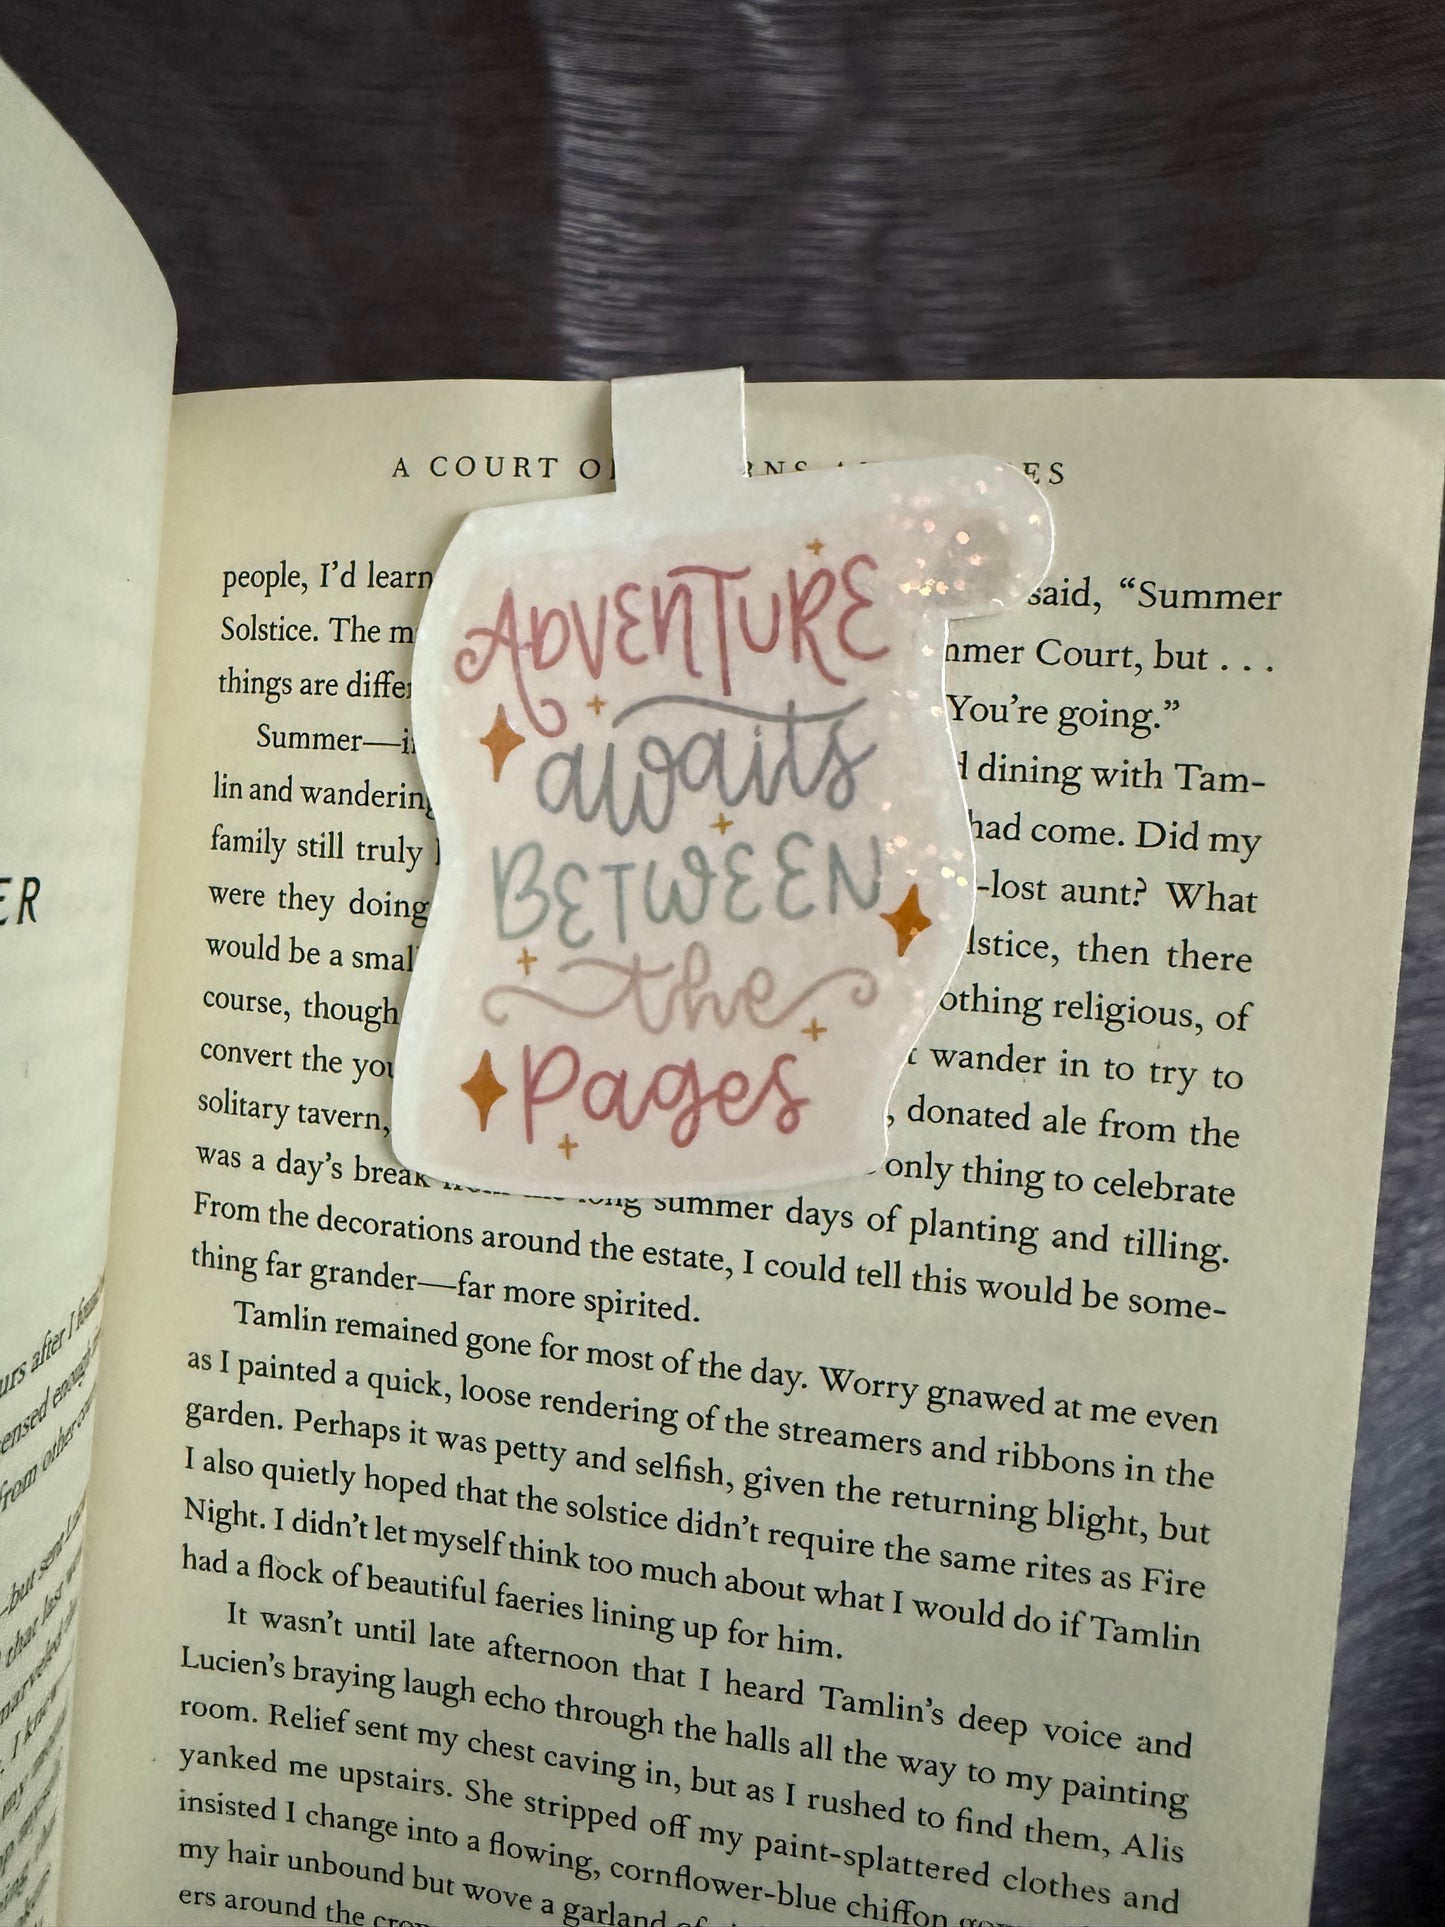 A COURT
ES
people, I'd learn
said, "Summer
Solstice. The
Court, but . . .
things are
"You're going."
Summer—
dining with Tam-
lin and
had come. Did my
family still truly
-lost aunt? What
were they doing
then there
would be a
religious, of
course, though
wander in to try to
convert the
solitary tavern,
, donated ale from the
was a day's break
only thing to celebrate
long summer days of planting and tilling.
From the decorations around the estate, I could tell this would be some-
thing far grander—far more spirited.
Tamlin remained gone for most of the day. Worry gnawed at me even
as I painted a quick, loose rendering of the streamers and ribbons in the
garden. Perhaps it was petty and selfish, given the returning blight, but
I also quietly hoped that the solstice didn't require the same rites as Fire
Night. I didn't let myself think too much about what I would do if Tamlin
had a flock of beautiful faeries lining up for him.
It wasn't until late afternoon that I heard Tamlin's deep voice and
Lucien's braying laugh echo through the halls all the way to my painting
room. Relief sent my chest caving in, but as I rushed to find them, Alis
yanked me upstairs. She stripped off my paint-splattered clothes and
insisted I change into a flowing, cornflower-blue chiffon
my hair unbound but wove a garland
ers around the
ADVENTURE
awaits
BETWEEN
the
pages
ER